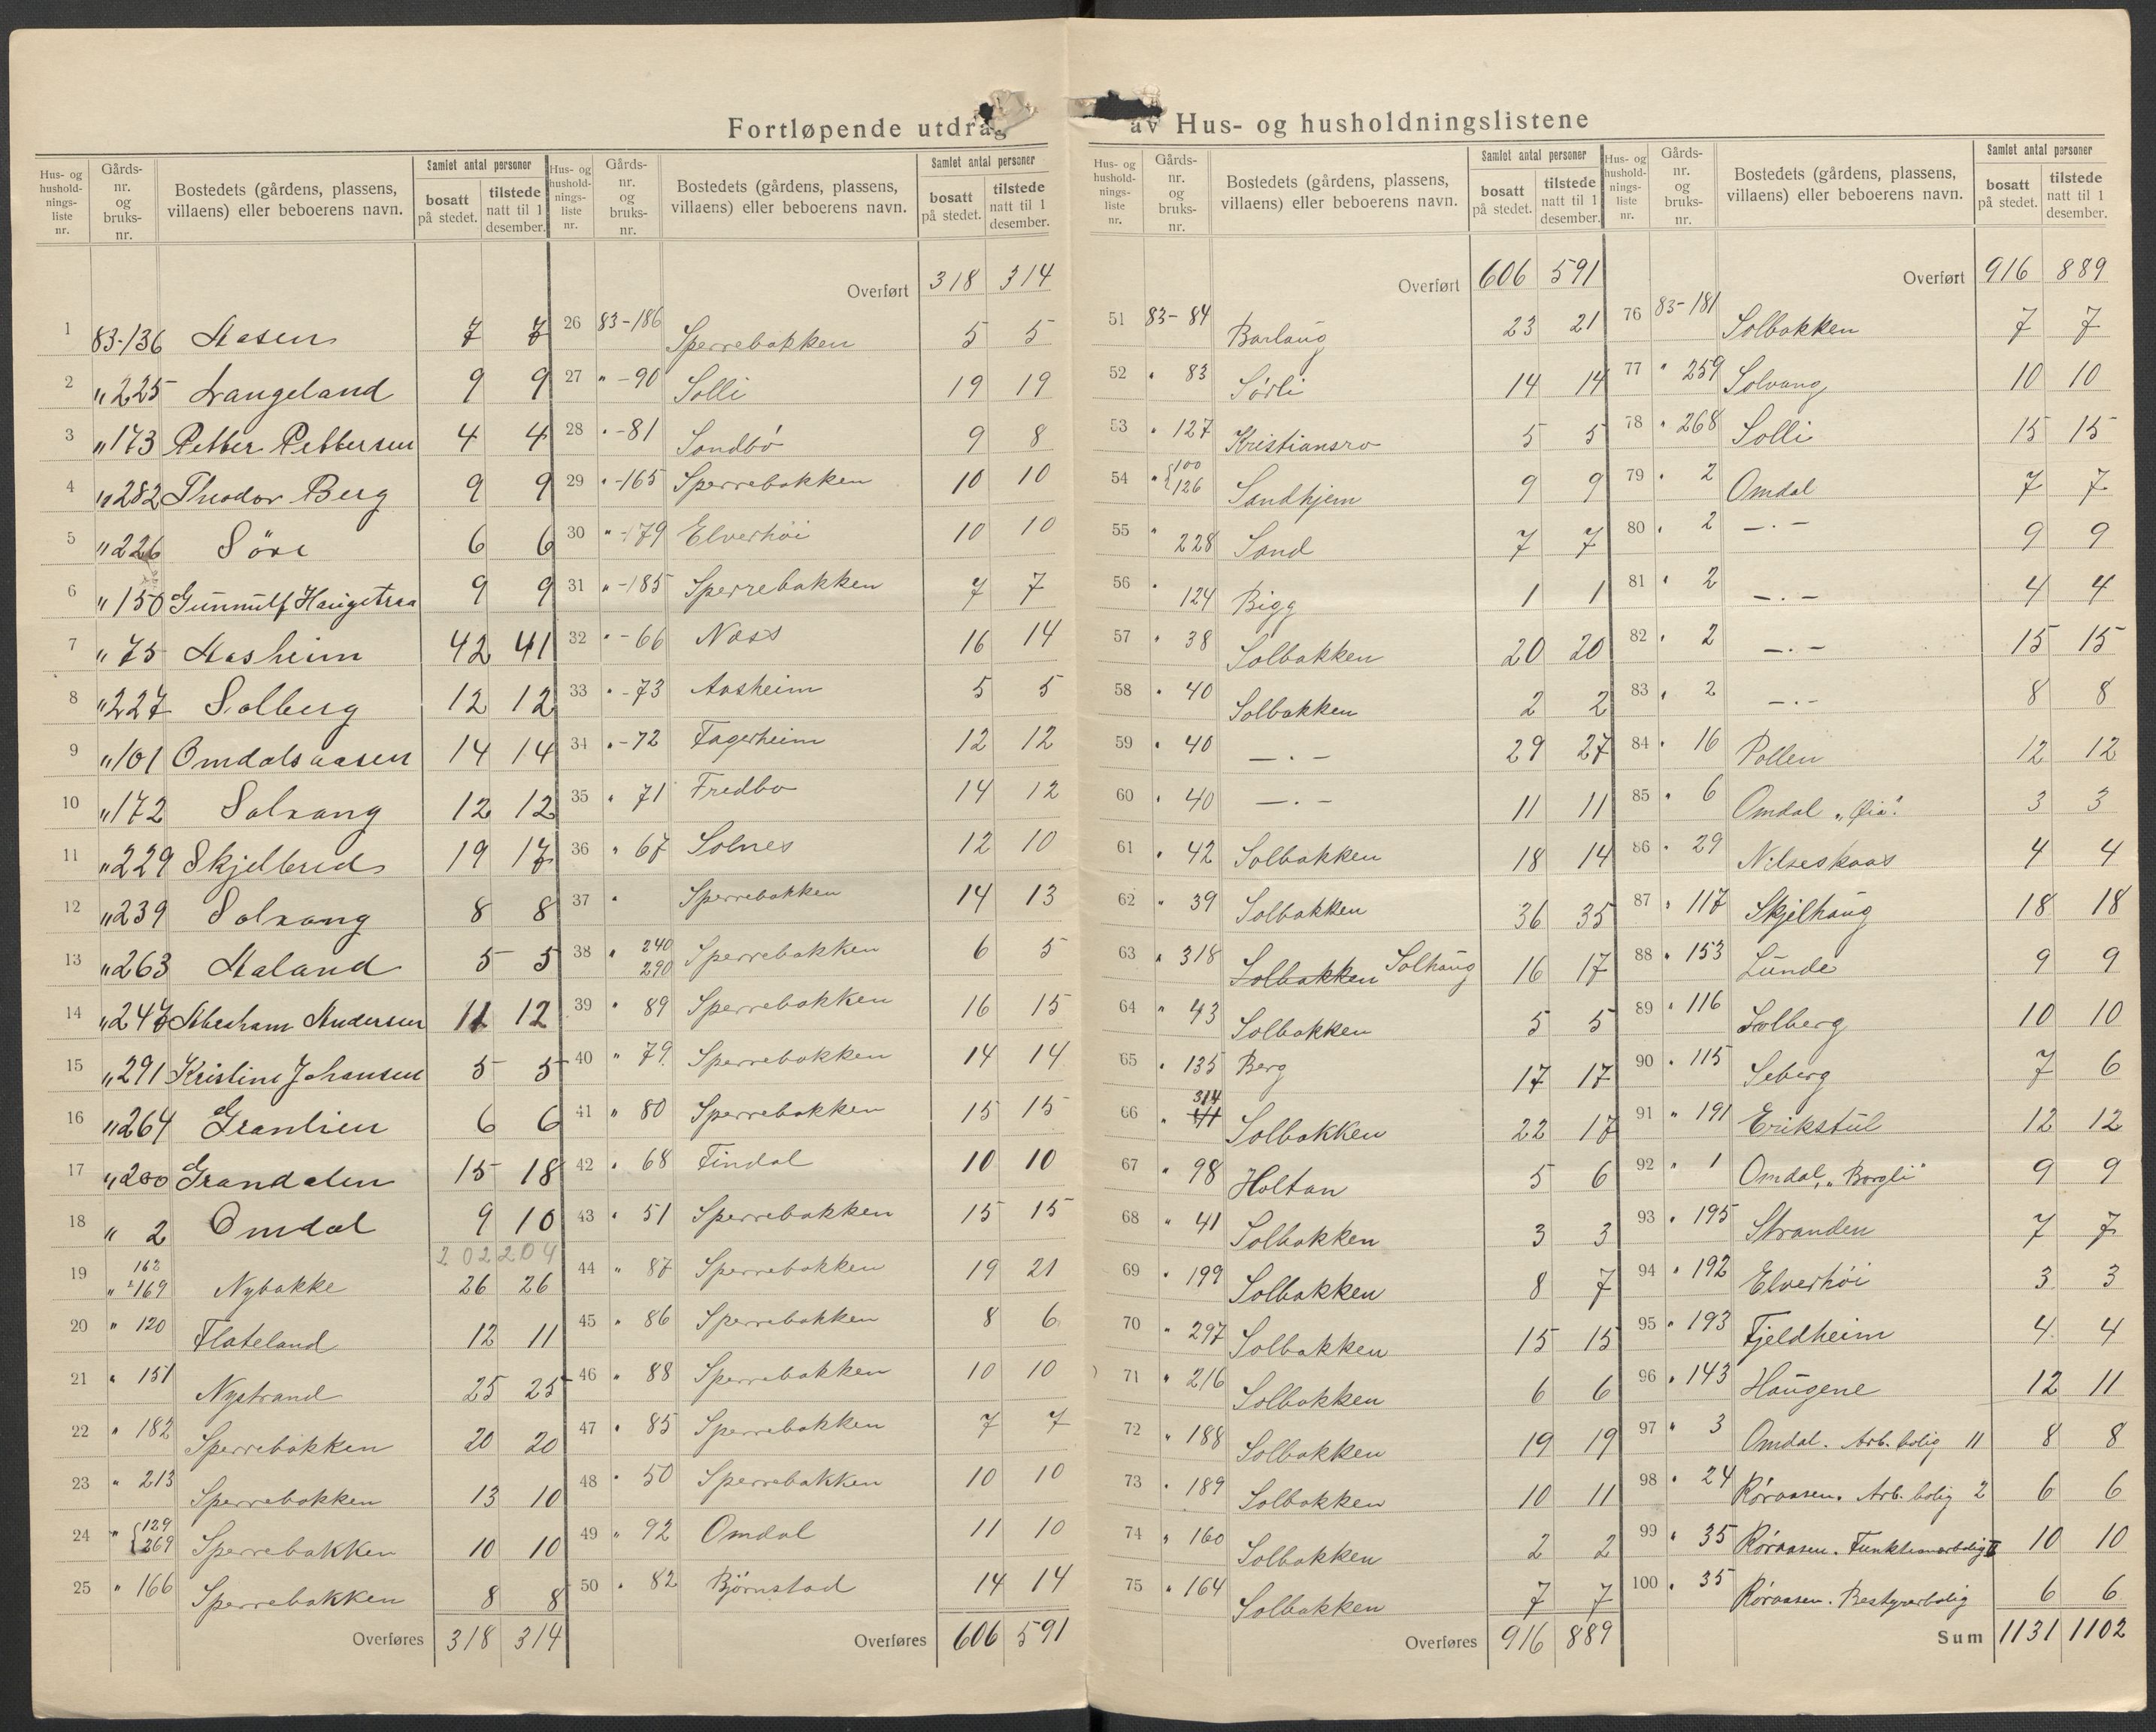 Fortløpende utdrag av Hus- og husholdningslistene
Hus- og hushold-nings-liste nr. | Gårds-nr. og bruks-nr. | Bostedets (gårdens, plassens, villaens) eller beboerens navn. | Samlet antal personer | bosatt på stedet. | tilstede natt til 1 desember.
1 83-136 Aasen 7 7
2 " 225 Langeland 9 9
3 " 173 Petter Pettersen 4 4
4 " 282 Theodor Berg 9 9
5 " 226 Söre 6 6
6 " 150 Gunnulf Haugetraa 9 9
7 " 75 Aasheim 42 41
8 " 227 Solberg 12 12
9 " 101 Omdalsaasen 14 14
10 " 172 Solvang 12 12
11 " 229 Skjelbred 19 17
12 " 239 Solvang 8 8
13 " 263 Aaland 5 5
14 " 247 Abraham Andersen 11 12
15 " 291 Kristine Johansen 5 5
16 " 264 Granlien 6 6
17 " 200 Grandalen 15 18
18 " 2 Omdal 9 10
202 204
19 " 162 169 Nybakke 26 26
20 " 120 Flateland 12 11
21 " 151 Nystrand 25 25
22 " 182 Sperrebakken 20 20
23 " 213 Sperrebakken 13 10
24 " {129 269 Sperrebakken 10 10
25 " 166 Sperrebakken 8 8
Overføres 318 314
Hus- og hushold-nings-liste nr. | Gårds-nr. og bruks-nr. | Bostedets (gårdens, plassens, villaens) eller beboerens navn. | Samlet antal personer | bosatt på stedet. | tilstede natt til 1 desember.
Overført 318 314
26 83-186 Sperrebakken 5 5
27 " -90 Solli 19 19
28 " -81 Sandbö 9 8
29 " -165 Sperrebakken 10 10
30 " -179 Elverhöi 10 10
31 " -185 Sperrebakken 7 7
32 " -66 Næss 16 14
33 " -73 Aasheim 5 5
34 " -72 Fagerheim 12 12
35 " 71 Fredbo 14 12
36 " 67 Solnes 12 10
37 " Sperrebakken 14 13
38 " 240 290 Sperrebakken 6 5
39 " 89 Sperrebakken 16 15
40 " 79 Sperrebakken 14 14
41 " 80 Sperrebakken 15 15
42 " 68 Findal 10 10
43 " 51 Sperrebakken 15 15
44 " 87 Sperrebakken 19 21
45 " 86 Sperrebakken 8 6
46 " 88 Sperrebakken 10 10
47 " 85 Sperrebakken 7 7
48 " 50 Sperrebakken 10 10
49 " 92 Omdal 11 10
50 " 82 Bjørnstad 14 14
Overføres 606 591
Hus- og hushold-nings-liste nr. | Gårds-nr. og bruks-nr. | Bostedets (gårdens, plassens, villaens) eller beboerens navn. | Samlet antal personer | bosatt på stedet. | tilstede natt til 1 desember.
Overført 606 591
51 83-84 Barlaug 23 21
52 " 83 Sørli 14 14
53 " 127 Kristiansro 5 5
54 " {100 126 Sandhjem 9 9
55 " 228 Sand 7 7
56 " 124 Bigg 1 1
57 " 38 Solbakken 20 20
58 " 40 Solbakken 2 2
59 " 40 — . — 29 27
60 " 40 — . — 11 11
61 " 42 Solbakken 18 14
62 " 39 Solbakken 36 35
63 " 318 Solbakken Solhaug 16 17
64 " 43 Solbakken 5 5
65 " 135 Berg 17 17
66 " 314 41 Solbakken 22 17
67 " 98 Holtan 5 6
68 " 41 Solbakken 3 3
69 " 199 Solbakken 8 7
70 " 297 Solbakken 15 15
71 " 216 Solbakken 6 6
72 " 188 Solbakken 19 19
73 " 189 Solbakken 10 11
74 " 160 Solbakken 2 2
75 " 164 Solbakken 7 7
Overføres 916 889
Hus- og hushold-nings-liste nr. | Gårds-nr. og bruks-nr. | Bostedets (gårdens, plassens, villaens) eller beboerens navn. | Samlet antal personer | bosatt på stedet. | tilstede natt til 1 desember.
Overført 916 889
76 83-181 Solbakken 7 7
77 " 259 Solvang 10 10
78 " 268 Solli 15 15
79 " 2 Omdal 7 7
80 " 2 — . — 9 9
81 " 2 — . — 4 4
82 " 2 — . — 15 15
83 " 2 — . — 8 8
84 " 16 Pollen 12 12
85 " 6 Omdal 3 3
86 " 29 Nilseskaas 4 4
87 " 117 Skjelhaug 18 18
88 " 153 Lunde 9 9
89 " 116 Solberg 10 10
90 " 115 Seberg 7 6
91 " 191 Erikstul 12 12
92 " 1 Omdal, "Borgli" 9 9
93 " 195 Stranden 7 7
94 " 192 Elverhöi 3 3
95 " 193 Fjeldheim 4 4
96 " 143 Haugene 12 11
97 " 3 Omdal. Arb. bolig 11 8 8
98 " 24 Røraasen. Arb. bolig 2 6 6
99 " 35 Røraasen. Funktionærbolig 10 10
100 " 35 Røraasen. Bestyrerbolig 6 6
Sum 1131 1102